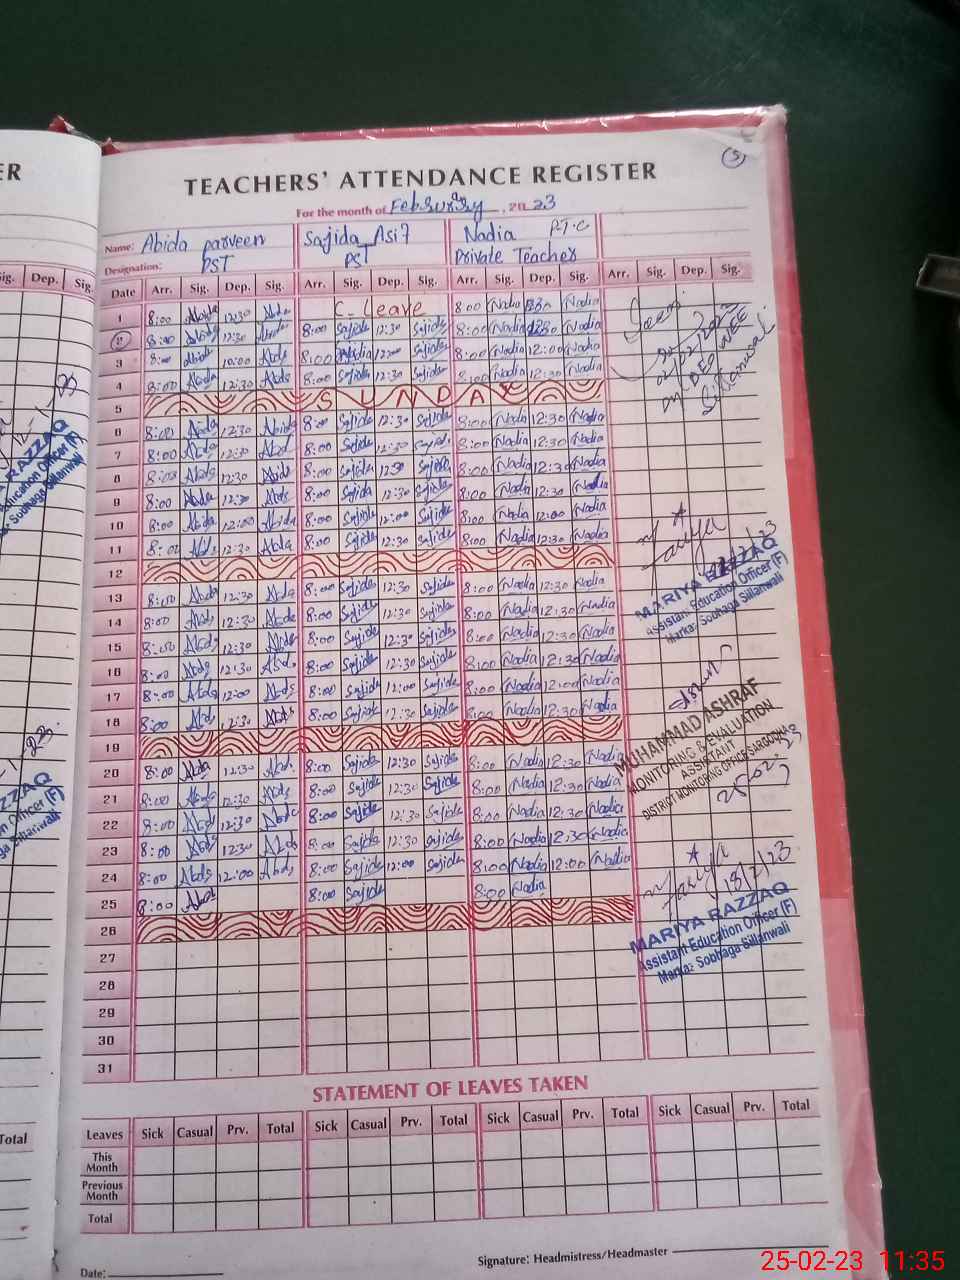 ER
TEACHERS' ATTENDANCE REGISTER
5
For the month of February, 2023
Name: Abida parveen Sajida Asif Nadia P.T.C
Designation: PST PST Private Teacher
ig. Dep. Sig.
Date Arr. Sig. Dep. Sig. Arr. Sig. Dep. Sig. Arr. Sig. Dep. Sig. Arr. Sig. Dep. Sig.
1 8:00 Abida 12:30 Abda C- Leave 8:00 Nadia Nadia
2 8:00 12:30 8:00 Sajida 12:30 Sajida 8:00 Nadia Nadia
3 8:00 Abida 10:00 Abda 8:00 Sajida 8:00 Nadia 12:00 Nadia
4 8:00 Abida 12:30 Abda 8:00 Sajida 12:30 Sajida 8:00 Nadia 12:30 Nadia
5 SUNDAY
6 8:00 Abda 12:30 Abida 8:00 Sajida 12:30 Sajida 8:00 Nadia 12:30 Nadia
7 8:00 Abda 12:30 Abda 8:00 Sajida 12:30 Sajida 8:00 Nadia 12:30 Nadia
8 8:00 Abda 12:30 Abida 8:00 Sajida 12:30 Sajida 8:00 Nadia 12:30 Nadia
9 8:00 Abda 12:30 Abda 8:00 Sajida 12:30 Sajida 8:00 Nadia 12:30 Nadia
10 8:00 Abida 12:00 Abida 8:00 Sajida 12:00 Sajida 8:00 Nadia 12:00 Nadia
11 8:00 Abda 12:30 Abda 8:00 Sajida 12:30 Sajida 8:00 Nadia 12:30 Nadia
12
13 8:00 Abda 12:30 Abda 8:00 Sajida 12:30 Sajida 8:00 Nadia 12:30 Nadia
14 8:00 Abda 12:30 Abda 8:00 Sajida 12:30 Sajida 8:00 Nadia 12:30 Nadia
15 8:00 Abda 12:30 Abda 8:00 Sajida 12:30 Sajida 8:00 Nadia 12:30 Nadia
16 8:00 Abda 12:30 Abda 8:00 Sajida 12:30 Sajida 8:00 Nadia 12:30 Nadia
17 8:00 Abda 12:00 Abda 8:00 Sajida 12:00 Sajida 8:00 Nadia 12:00 Nadia
18 8:00 Abda 12:30 Abda 8:00 Sajida 12:30 Sajida 8:00 Nadia 12:30 Nadia
19
20 8:00 Abda 12:30 Abda 8:00 Sajida 12:30 Sajida 8:00 Nadia 12:30 Nadia
21 8:00 Abda 12:30 Abda 8:00 Sajida 12:30 Sajida 8:00 Nadia 12:30 Nadia
22 8:00 Abda 12:30 Abda 8:00 Sajida 12:30 Sajida 8:00 Nadia 12:30 Nadia
23 8:00 Abda 12:30 Abda 8:00 Sajida 12:30 Sajida 8:00 Nadia 12:30 Nadia
24 8:00 Abda 12:00 Abda 8:00 Sajida 12:00 Sajida 8:00 Nadia 12:00 Nadia
25 8:00 Abda 8:00 Sajida 8:00 Nadia
26
27
28
29
30
31
Seen
DEO WEE
Sillanwali
MARIYA RAZZAQ
Assistant Education Officer (F)
Markaz Sobhaga Sillanwali
MUHAMMAD ASHRAF
MONITORING & EVALUATION
ASSISTANT
DISTRICT MONITORING OFFICE SARGODHA
25-02-23
18/2/23
MARIYA RAZZAQ
Assistant Education Officer (F)
Markaz Sobhaga Sillanwali
RAZZAQ
Education Officer (F)
Sobhaga Sillanwali
ZZAQ
Officer (F)
Sillanwali
STATEMENT OF LEAVES TAKEN
Leaves Sick Casual Prv. Total Sick Casual Prv. Total Sick Casual Prv. Total Sick Casual Prv. Total
This Month
Previous Month
Total
Total
Date:
Signature: Headmistress/Headmaster
25-02-23 11:35